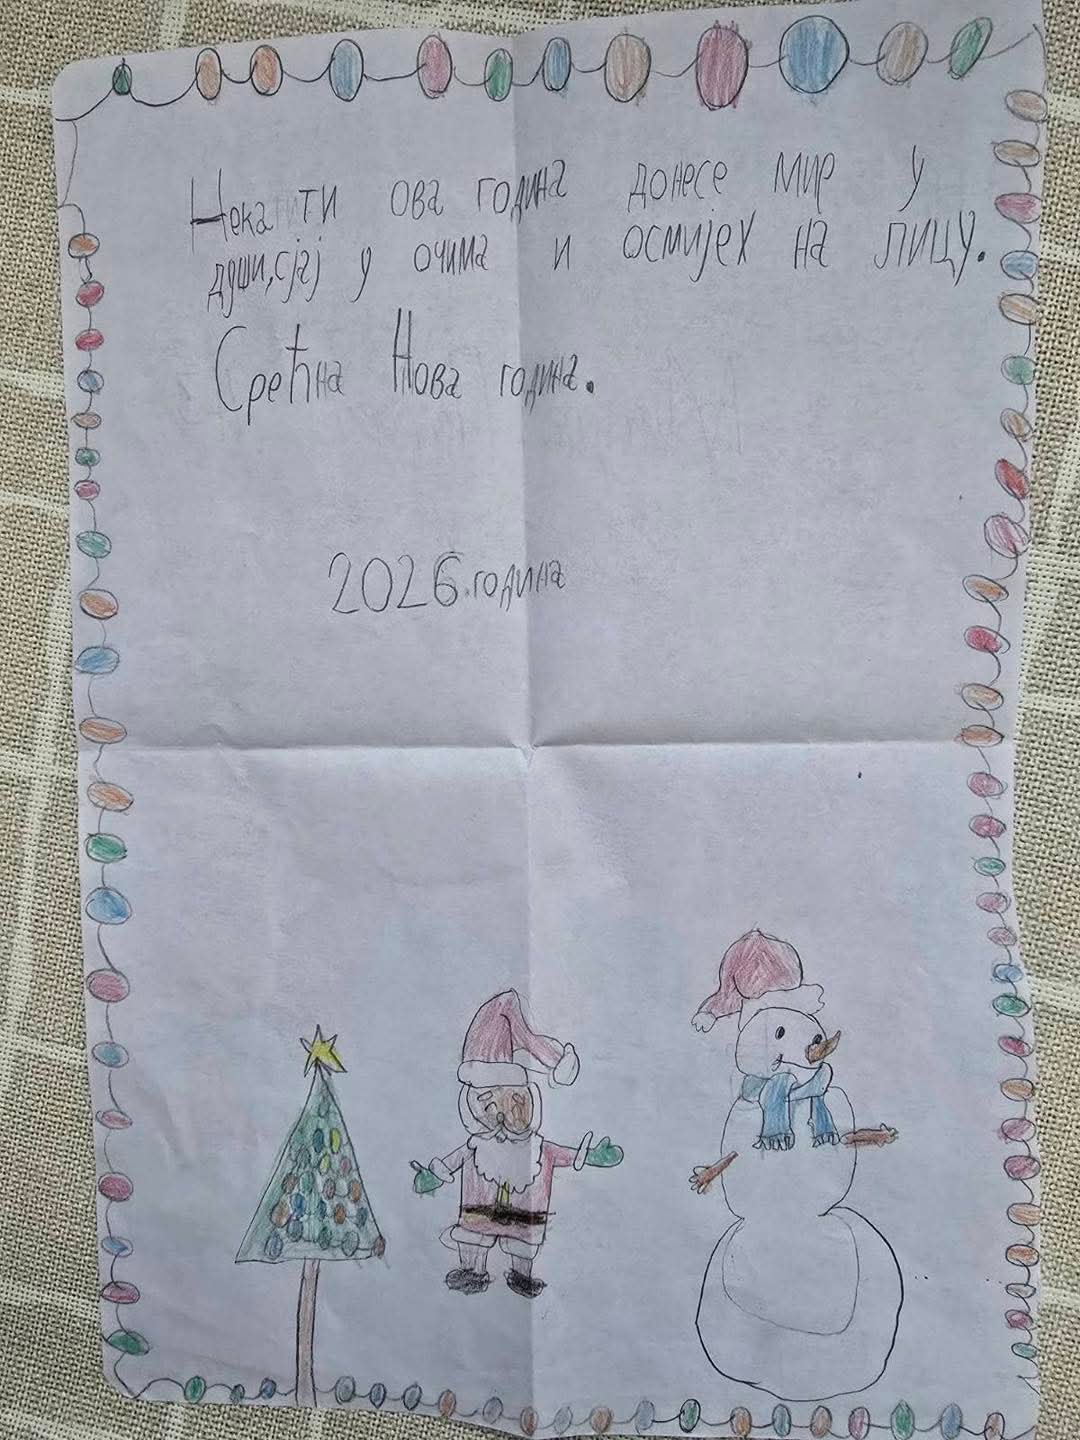 Нека ти ова година донесе мир у
души,сјај у очима и осмијех на лицу.
Срећна Нова година.
2026.година